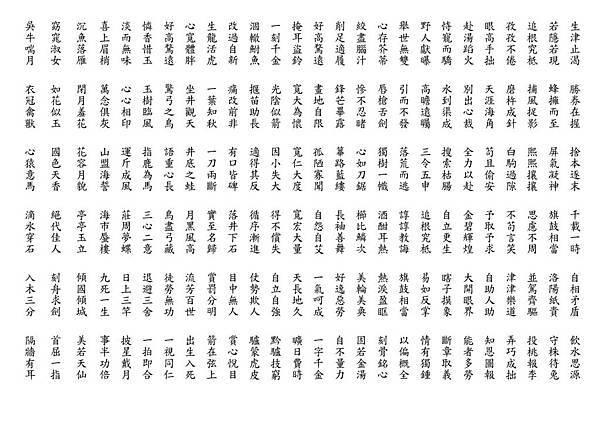 生津止渴 勝券在握 捨本逐末 千載一時 自相矛盾 飲水思源
若隱若現 蜂擁而至 屏氣凝神 旗鼓相當 洛陽紙貴 守株待兔
追根究柢 捕風捉影 熙熙攘攘 思慮不周 並駕齊驅 投桃報李
孜孜不倦 磨杵成針 白駒過隙 不苟言笑 津津樂道 弄巧成拙
眼高手拙 天涯海角 苟且偷安 予取予求 自助人助 知恩圖報
赴湯蹈火 別出心裁 全力以赴 金碧輝煌 大開眼界 能者多勞
恃寵而驕 水到渠成 搜索枯腸 自立更生 瞎子摸象 斷章取義
野人獻曝 高瞻遠矚 三令五申 追根究柢 易如反掌 情有獨鍾
舉世無雙 引而不發 落荒而逃 諄諄教誨 旗鼓相當 以偏概全
心存芥蒂 唇槍舌劍 獨樹一幟 酒酣耳熱 熱淚盈眶 刻骨銘心
絞盡腦汁 慘不忍睹 心如刀鋸 櫛比鱗次 美輪美奐 固若金湯
削足適履 鋒芒畢露 篳路藍縷 長袖善舞 好逸惡勞 自不量力
好高騖遠 畫地自限 孤陋寡聞 自怨自艾 一氣呵成 一字千金
掩耳盜鈴 寬大為懷 寬仁大度 寬宏大量 天長地久 曠日費時
一刻千金 光陰似箭 因小失大 得不償失 自立自強 黔驢技窮
涸轍鮒魚 揠苗助長 適得其反 循序漸進 仗勢欺人 驢蒙虎皮
改過自新 痛改前非 有口皆碑 落井下石 目中無人 賞心悅目
生龍活虎 一葉知秋 一刀兩斷 實至名歸 賞罰分明 箭在弦上
心寬體胖 坐井觀天 井底之蛙 月黑風高 流芳百世 出生入死
好高騖遠 驚弓之鳥 語重心長 鳥盡弓藏 徒勞無功 一視同仁
憐香惜玉 玉樹臨風 指鹿為馬 三心二意 退避三舍 一拍即合
淡而無味 心心相印 運斤成風 莊周夢蝶 日上三竿 披星戴月
喜上眉梢 萬念俱灰 山盟海誓 海市蜃樓 九死一生 事半功倍
沉魚落雁 閉月羞花 花容月貌 亭亭玉立 傾國傾城 美若天仙
窈窕淑女 如花似玉 國色天香 絕代佳人 刻舟求劍 首屈一指
吳牛喘月 衣冠禽獸 心猿意馬 滴水穿石 入木三分 隔牆有耳